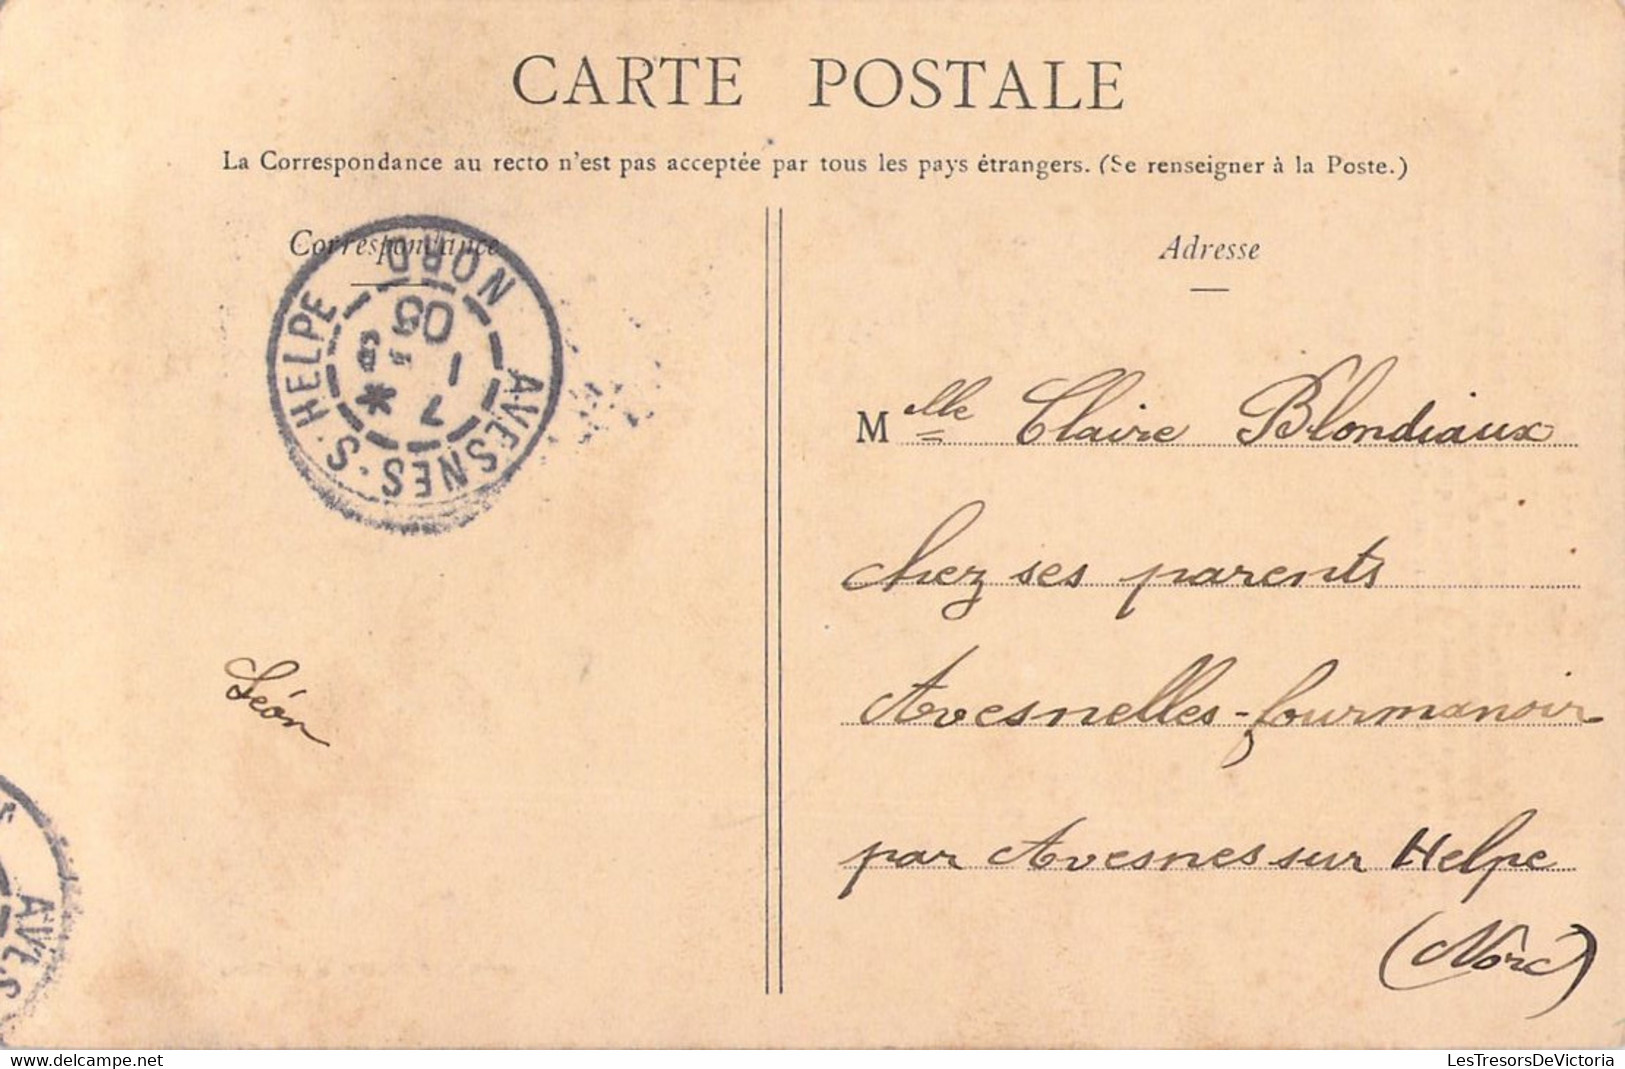 CARTE POSTALE
La Correspondance au recto n'est pas acceptée par tous les pays étrangers. (Se renseigner à la Poste.)
Correspondance
AVESNES-S-HELPE
NORD
7 -1
05
Léon
AVES
Adresse
Melle Claire Blondiaux
chez ses parents
Avesnelles-fourmanoir
par Avesnes sur Helpe
(Nord)
LesTresorsDeVictoria